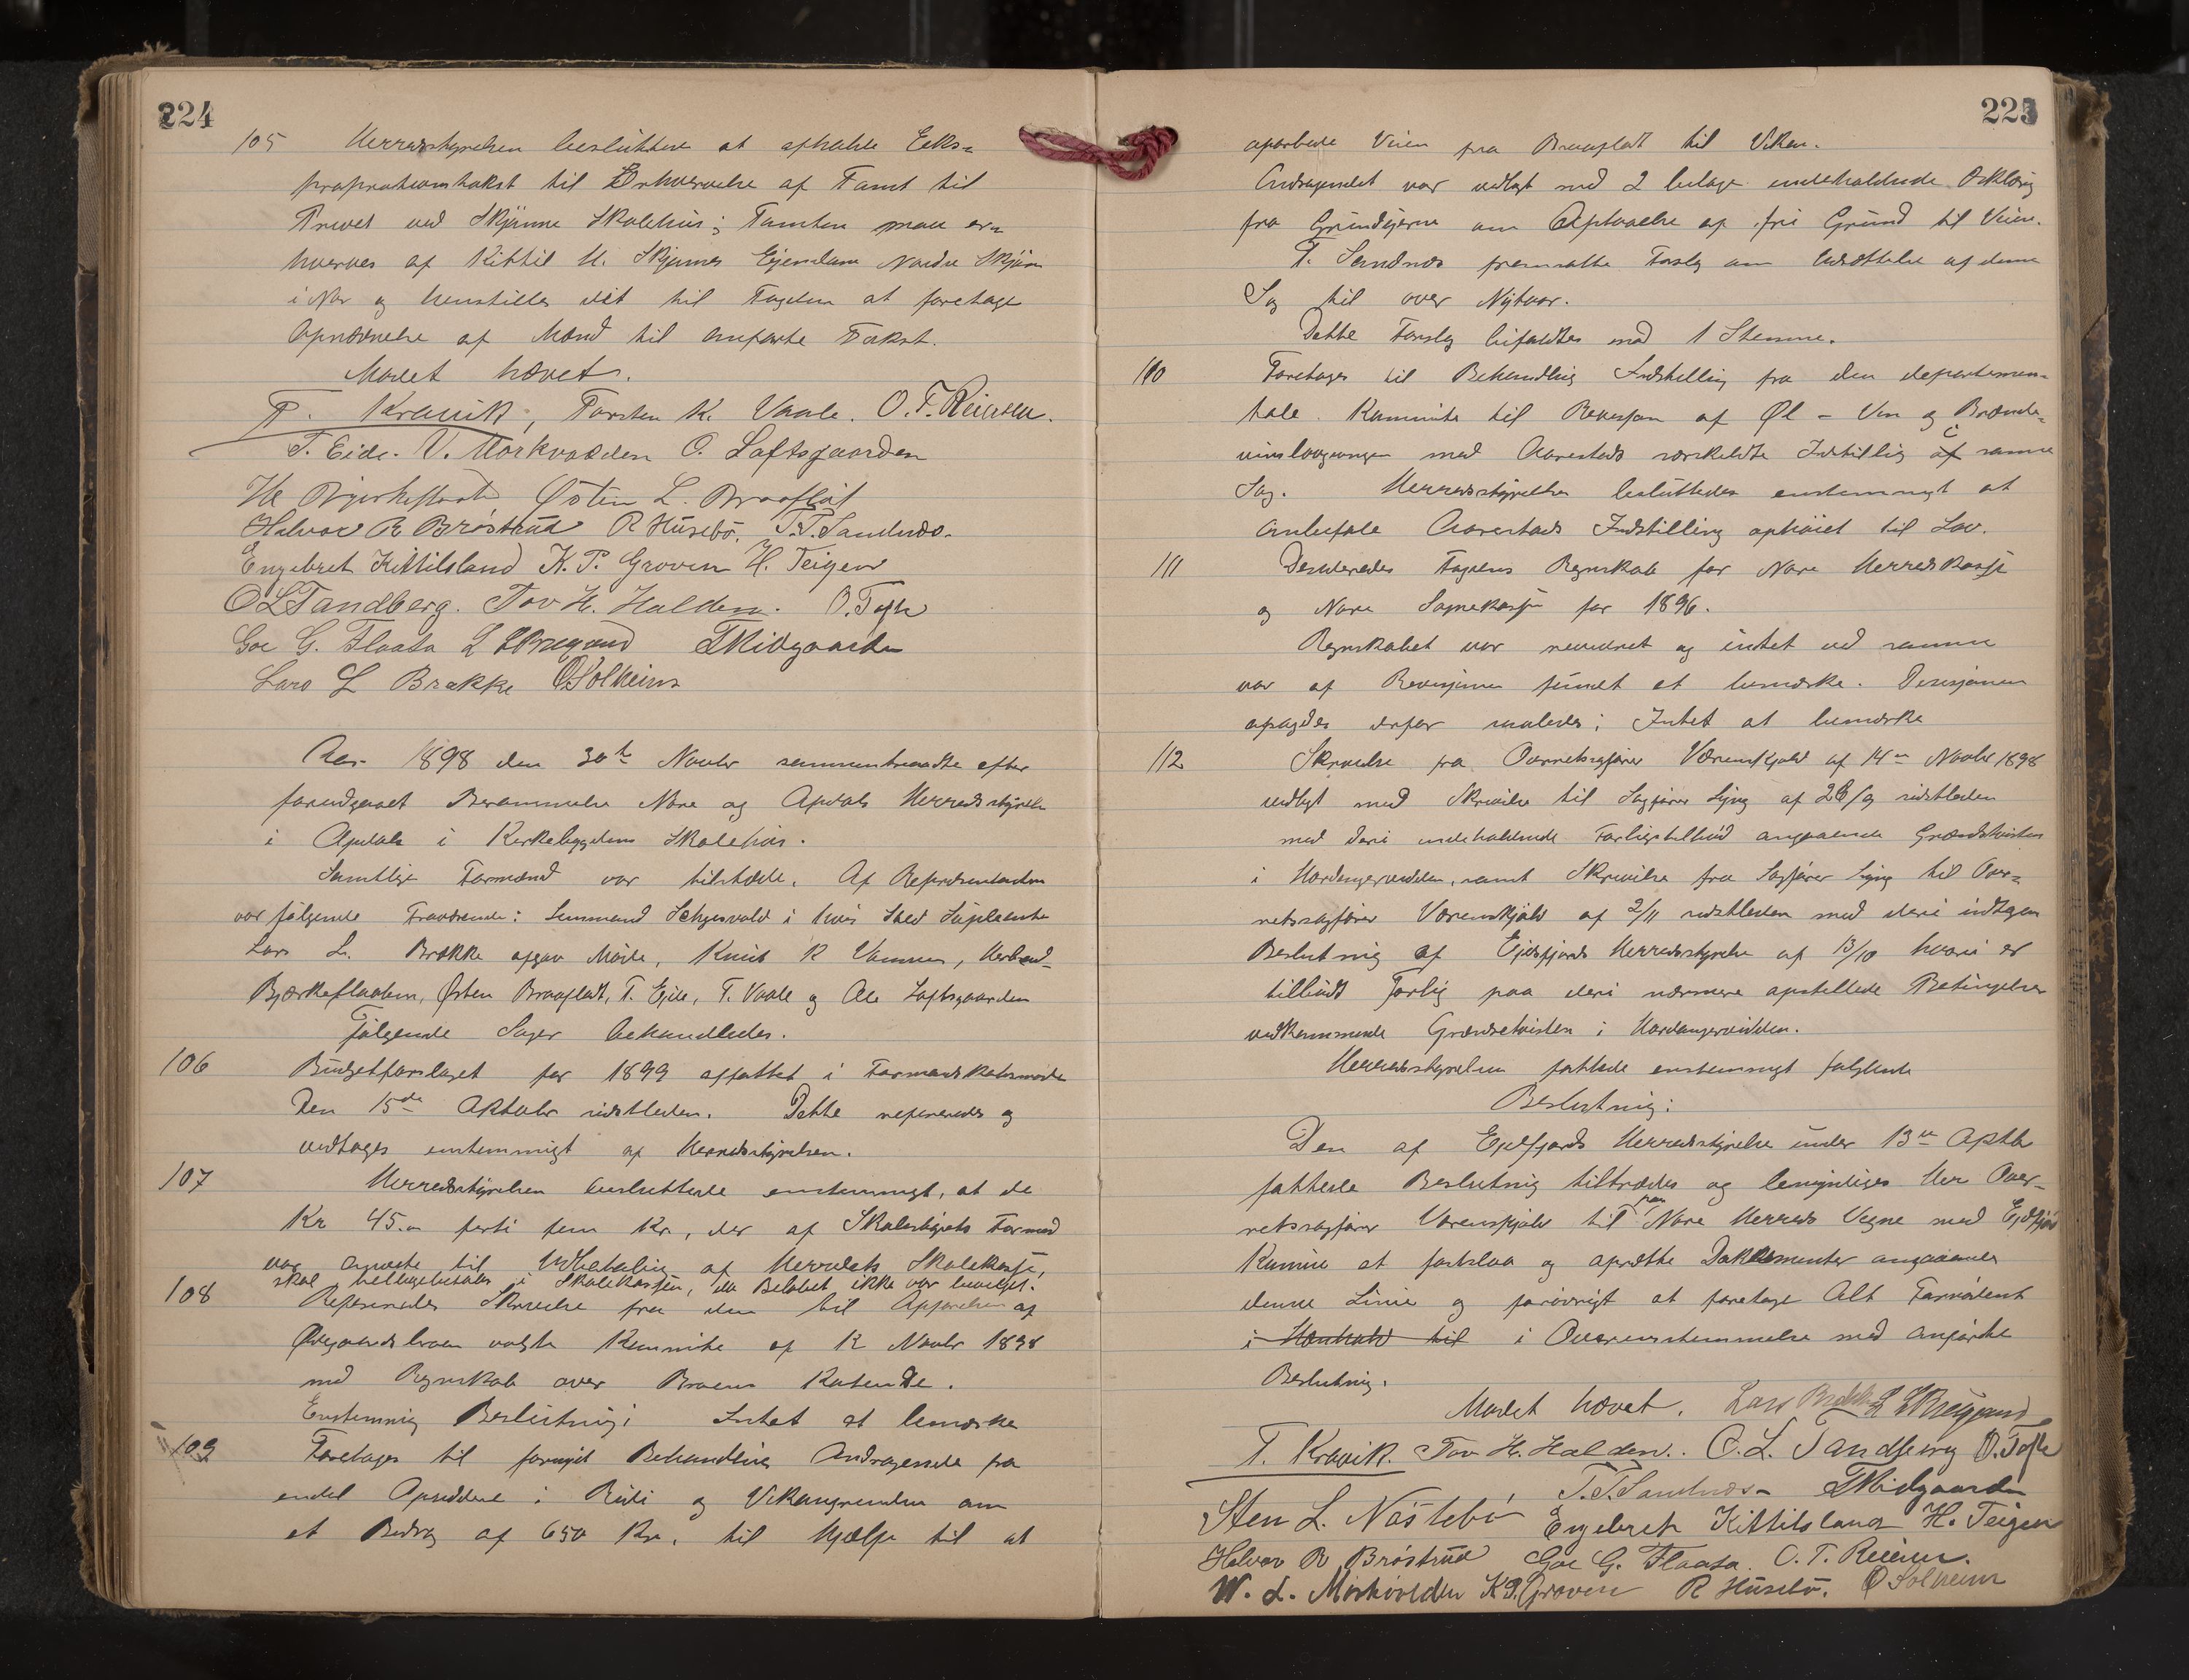 224
105 Herredsstyrelsen besluttede at afholde Eks-
propriationstakst til Erhvervelse af Tomt til
Privet ved Skjønne Skolehus; Tomten maa er-
hverves af Kittil H. Skjønnes Ejendom Nordre Skjøn
i Nor og henstilles det til Fogden at foretage
Opnævnelse af Mænd til anførte Takst.
Mødet hævet.
T. Kravik, Torsten K. Vaale. O. T. Reiersen.
T. Eide. V. Mørkvolden O. Loftsgaarden
H Bjerkeflaat Østen L. Braaflat
Halvor R Brøstrud R Husebø. T. T. Sandnæs.
Engebret Kittilsland K. P. Groven H. Teigen
O L Tandberg. Tov H. Halden. O. Tofte
Goe G. Flaata L L Bregaard T Midgaarden
Lars L Brække O Solheim
Aar 1898 den 30te Novbr sammentraadte efter
forudgaaet Berammelse Nore og Opdals Herredsstyrelse
i Opdal i Kirkebygdens Skolehus.
Samtlige Formænd var tilstede. Af Repræsentanter
var følgende Fraværende: Lensmand i hvis Sted Supleante
Lars L. Brække afgav Møde, Knut K Vannen, Herbrand
Bjerkeflaaten, Østen Braafladt, T. Ejde, T. Vaale og Ole Loftsgaarden
Følgende Sager behandledes.
106 Budgetforslaget for 1899 affattet i Formandskabsmøde
den 15de Oktober sidstleden. Dette refereredes og
vedtages enstemmigt af Herredsstyrelsen.
107 Herredsstyrelsen besluttede enstemmigt, at de
Kr 45.00 førti fem Kr, der af Skolestyrets Formand
var anviste til Udbetaling af Herredets Skolekasse,
skal tilbagebetales i Skolekassen, da Beløbet ikke var bevilget.
108 Refereredes Skrivelse fra den til Opførelsen af
Øygaardsbroen valgte Kommite af 12 Novbr 1898
med Regnskab over Broens Kostende.
Enstemmig Beslutning: Intet at bemærke
109 Foretages til fornyet Behandling Andragende fra
endel Opsiddere i Ruti og Vikangrenden om
et Bidrag af 650 Kr. til Hjælp til at
225
oparbeide Veien fra Braafladt til Viken.
Andragendet var vedlagt med 2 bilage indeholdende Erklæring
fra Grundejerne om Opladelse af fri Grund til Veien.
T. Sandnæs fremsatte Forslag om Udsættelse af denne
Sag til over Nytaar.
Dette Forslag bifaldtes mod 1 Stemme.
110 Foretages til Behandling Indstilling fra den departemen-
tale Kommite til Revisjon af Øl - Vin og Brænde-
vinslovgivningen med Aarestads særskildte Indstilling i samme
Sag. Herredsstyrelsen besluttedes enstemmigt at
anbefale Aarestads Indstilling ophøiet til Lov.
111 Desideredes Fogdens Regnskab for Nore Herredskasse
og Nore Sognekasse for 1896.
Regnskabet var revideret og intet ved samme
var af Revisjonen fundet at bemærke. Desisjonen
afsagdes derfor saaledes: Intet at bemærke
112 Skrivelse fra Overretssagfører Værenskjold af 14de Novbr 1898
vedlagt med Skrivelse til Sagfører Lyng af 26/9 sidstleden
med deri indeholdende Forligstilbud angaaende Grændsetvisten
i Hardangervidden, samt Skrivelse fra Sagfører Lyng til Over-
retssagfører Værenskjold af 2/11 sidstleden med deri indtagen
Beslutning af Ejdfjords Herredsstyrelse af 13/10 hvori er
tilbudt Forlig paa deri nærmere opstillede Betingelser
vedkommende Grændsetvisten i Hardangervidden.
Herredsstyrelsen fattede enstemmigt følgende
Beslutning:
Den af Ejdfjords Herredsstyrelse under 13de Oktb
fattede Beslutning tiltrædes og bemyndiges Herr Over-
retssagfører Værenskjold til paa Nore Herreds Vegne med Ejdfjord
Komune at fastslaa og oprette Dokumenter angaaende
denne Linie og forøvrigt at foretage Alt Fornødent
i Henhold til i Overensstemmelse med anførte
Beslutning.
Mødet hævet. Lars Brække L L Bregaard
T. Kravik. Tov H. Halden. O. L. Tandberg O. Tofte
T. T. Sandnæs T Midgaarden
Sten L. Nåstebø Engebret Kittilsland H. Teigen
Halvor R Brøstrud Goe G. Flaata. O. T. Reiersen.
W. L. Mørkvolden K P. Groven R Husebø. O Solheim